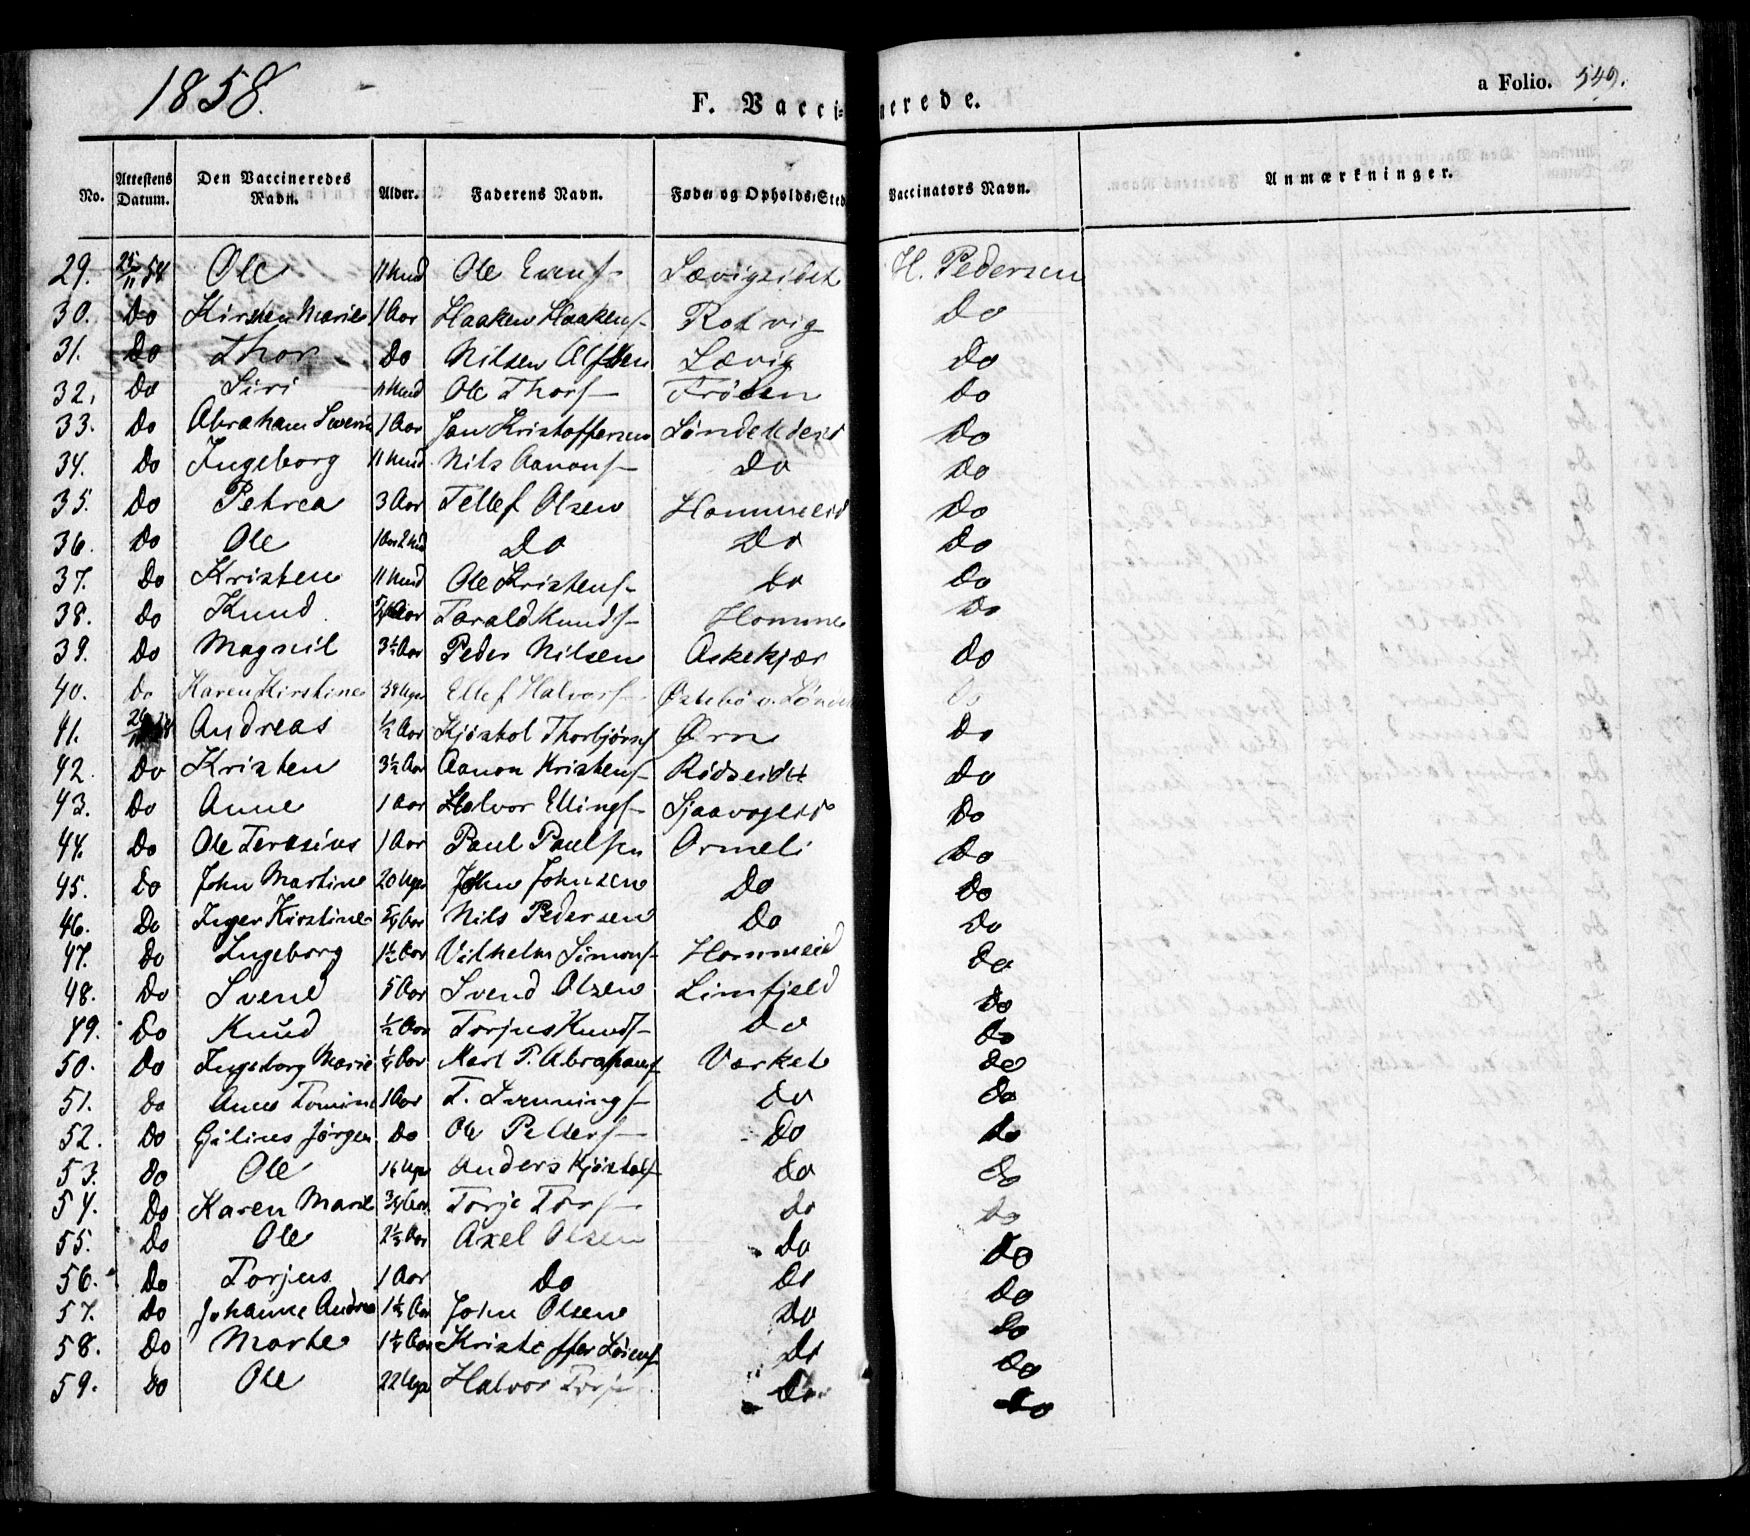 1858. F. Vaccinerede. a Folio. 549.
No. Attestens Datum. Den Vaccineredes Navn. Alder. Faderens Navn. Føde- og Opholds-Sted Vaccinators Navn. Anmærkninger.
29. 25/11 58 Ole 11 Mnd Ole Evens- Lævigseidet H. Pedersen
30. Do Kirsten Marie 1 Aar Haaken Haakens- Rotvig Do
31. Do Thor Do Nilsen Lævig Do
32. Do Siri 11 Mnd Ole Thors- Do
33. Do Abraham Severin 1 Aar Jan Kristoffersen Søndeledeid Do
34. Do Ingeborg 11 Mnd Nils Aanons- Do Do
35. Do Petrea 3 Aar Tellef Olsen Hommeeid Do
36. Do Ole 1 Aar 2 Mnd Do Do Do
37. Do Kristen 11 Mnd Ole Kristens- Do Do
38. Do Knud Aar Tarald Knuds- Homme Do
39. Do Magnil 3½ Aar Peder Nilsen Askekjær Do
40. Do Karen Kirstine 34 Uger Ellef Halvors- Østebø v. Do
41. Andreas ½ Aar Kjøstol Thorbjørns- Ørn Do
42. Do Kristen 3½ Aar Aanon Kristens- Rødseidet Do
43. Do Anne 1 Aar Halvor Ellings- Sjaavogeid Do
44. Do Ole Terasius 1 Aar Paul Paulsen Ormeli Do
45. Do John Martine 20 Uger John Johnsen Do Do
46. Do Inger Kirstine 5/4 Aar Nils Pedersen Do Do
47. Do Ingeborg 1½ Aar Vilhelm Simons- Hommeeid Do
48. Do Svend 5 Aar Svend Olsen Limfjeld Do
49. Do Knud ½ Aar Torjus Knuds- Do Do
50. Do Ingeborg Marie ¼ Aar Karl T. Abrahams- Værket Do
51. Do Anne Tomine 1 Aar T. Svennings- Do Do
52. Do Gilius Jørgen Do Ole Peders- Do Do
53. Do Ole 16 Uger Anders Kjøstols- Do Do
54. Do Karen Marie ¾ Aar Torje Tors- Do Do
55. Do Ole 2½ Aar Axel Olsen Do Do
56. Do Torjus 1 Aar Do Do Do
57. Do Johanne Andrea 1¼ Aar John Olsen Do Do
58. Do Marte 1¼ Aar Kristoffer Do Do
59. Do Ole 22 Uger Halvor Do Do